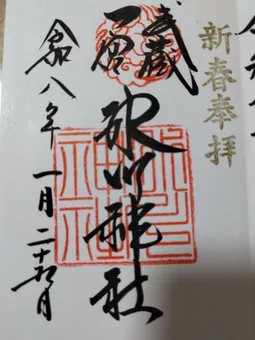 新春奉拝
武蔵
一宮
氷川神社
令和八年一月